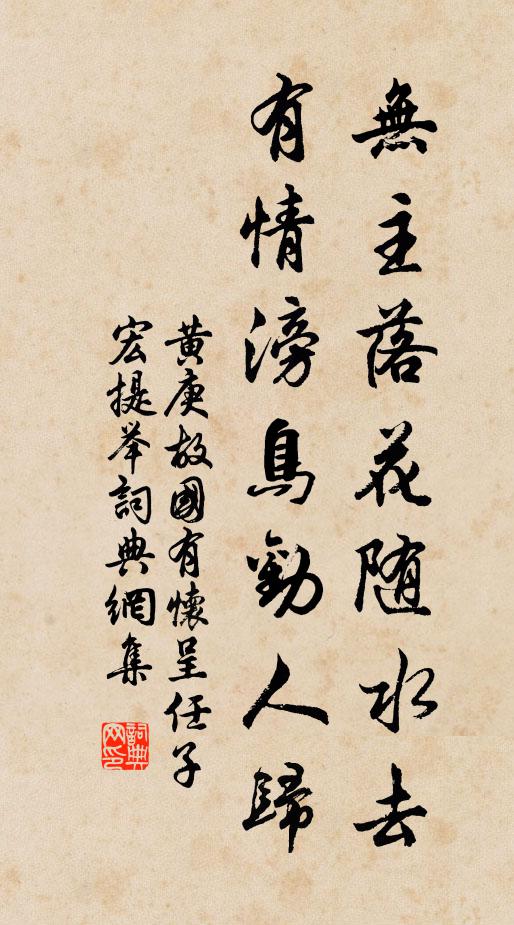 無主落花随水去
有情滂鳥勸人歸
黄庚故國有懷呈任子
宏提举詞典網集
詞典网印